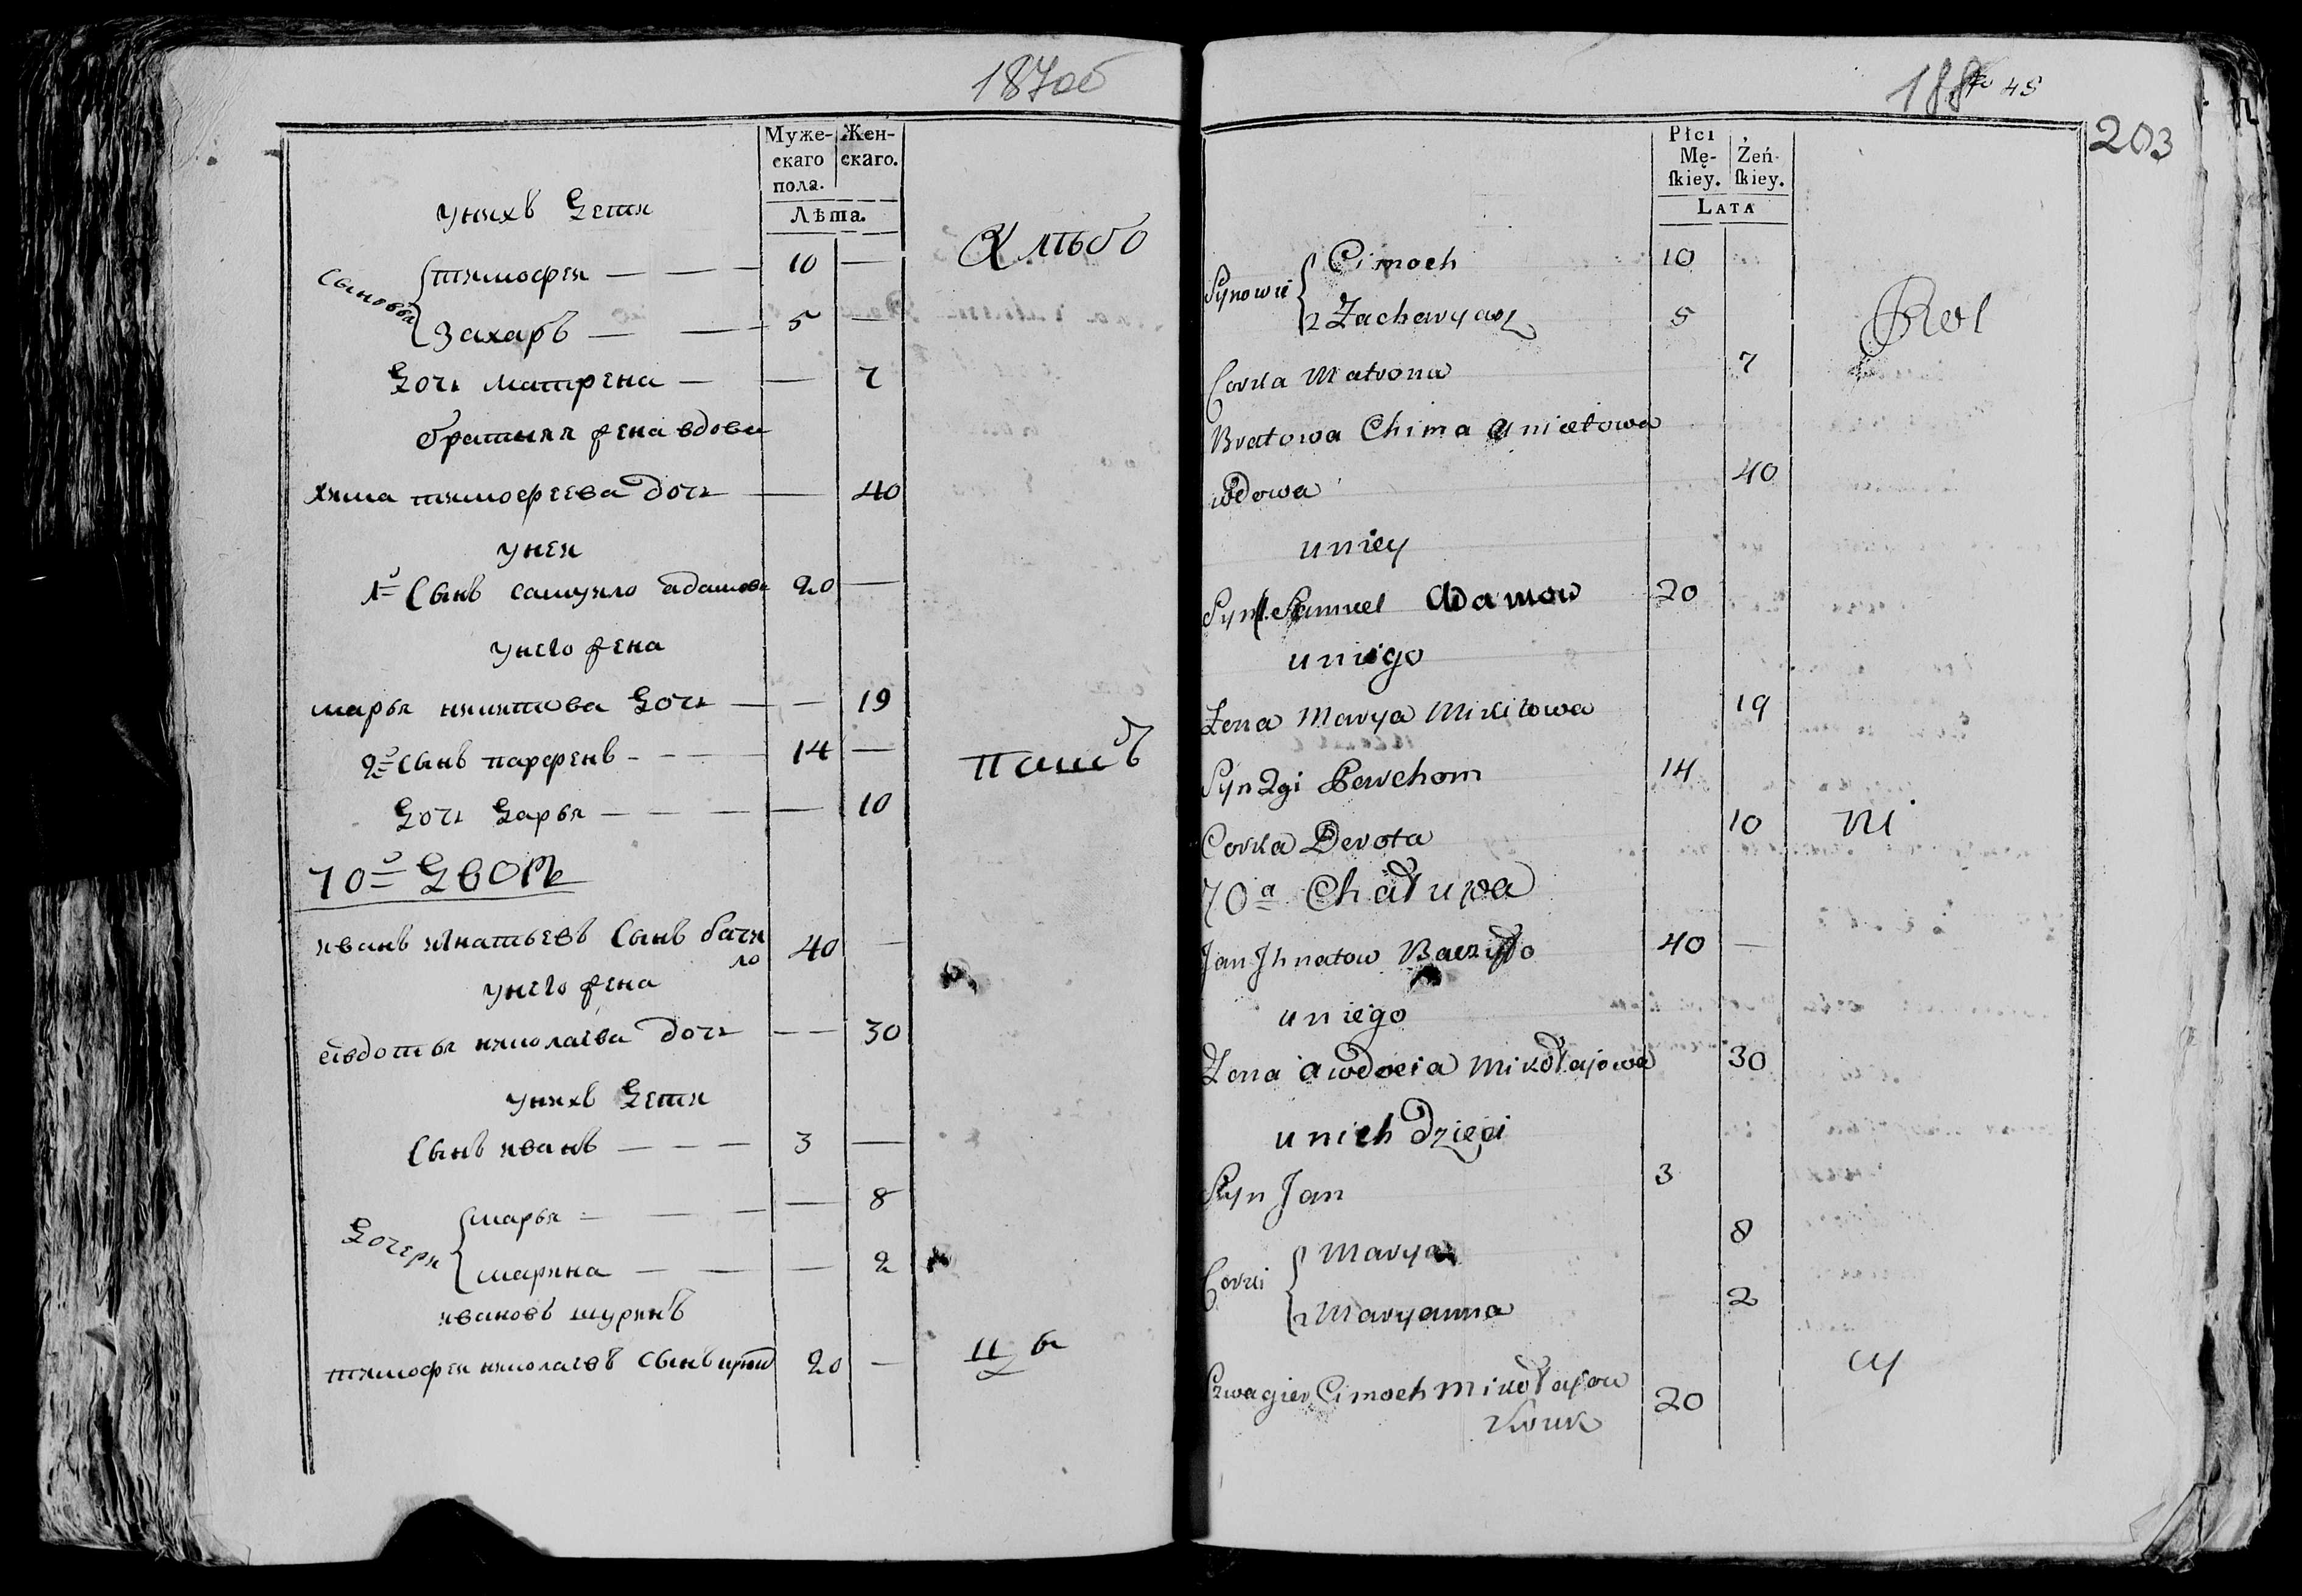 187об
Муже- Жен-
скаго скаго.
пола.
Лѣта.
унихъ дети
сыновья
тимофеи — — — 10 —
Захаръ — — 5 —
дочь матрена — — 7
братняя жена вдова
хима тимофеева дочь — 40
унеи
1й сынъ самуило адамовъ 20 —
унего жена
марья никитова дочь — — 19
2й сынъ парфенъ - — — 14 —
дочь дарья — — — — 10
70й дворъ
иванъ игнатьевъ сынъ бачи
ло 40 —
унего жена
евдотья николаева дочь — — 30
унихъ дети
сынъ иванъ — — — 3 —
дочери
марья — — — — 8
марина — — — 2
ивановъ шуринъ
тимофеи николаевъ сынъ 20 —
пашъ
45
203
Płci
Mę- Żeń-
ſkiey. ſkiey.
Lata
Synowie
Cimoch 10
2 Zacharyasz 5
Corka Matrona 7
Bratowa Chima
wdowa 40
u niey
Syn 1. Samuel Adamow 20
u niego
Zona Marya Mikitowa 19
Syn 2gi Parchom 14
Corka Dorota 10
70a Chałupa
Jan Jhnatow Baczyło 40 —
u niego
Zona Awdocia Mikołajowa 30
u nich dzieci
Syn Jan 3
Corki
Marya 8
2 Maryanna 2
Szwagier Cimoch Mikołajow 20